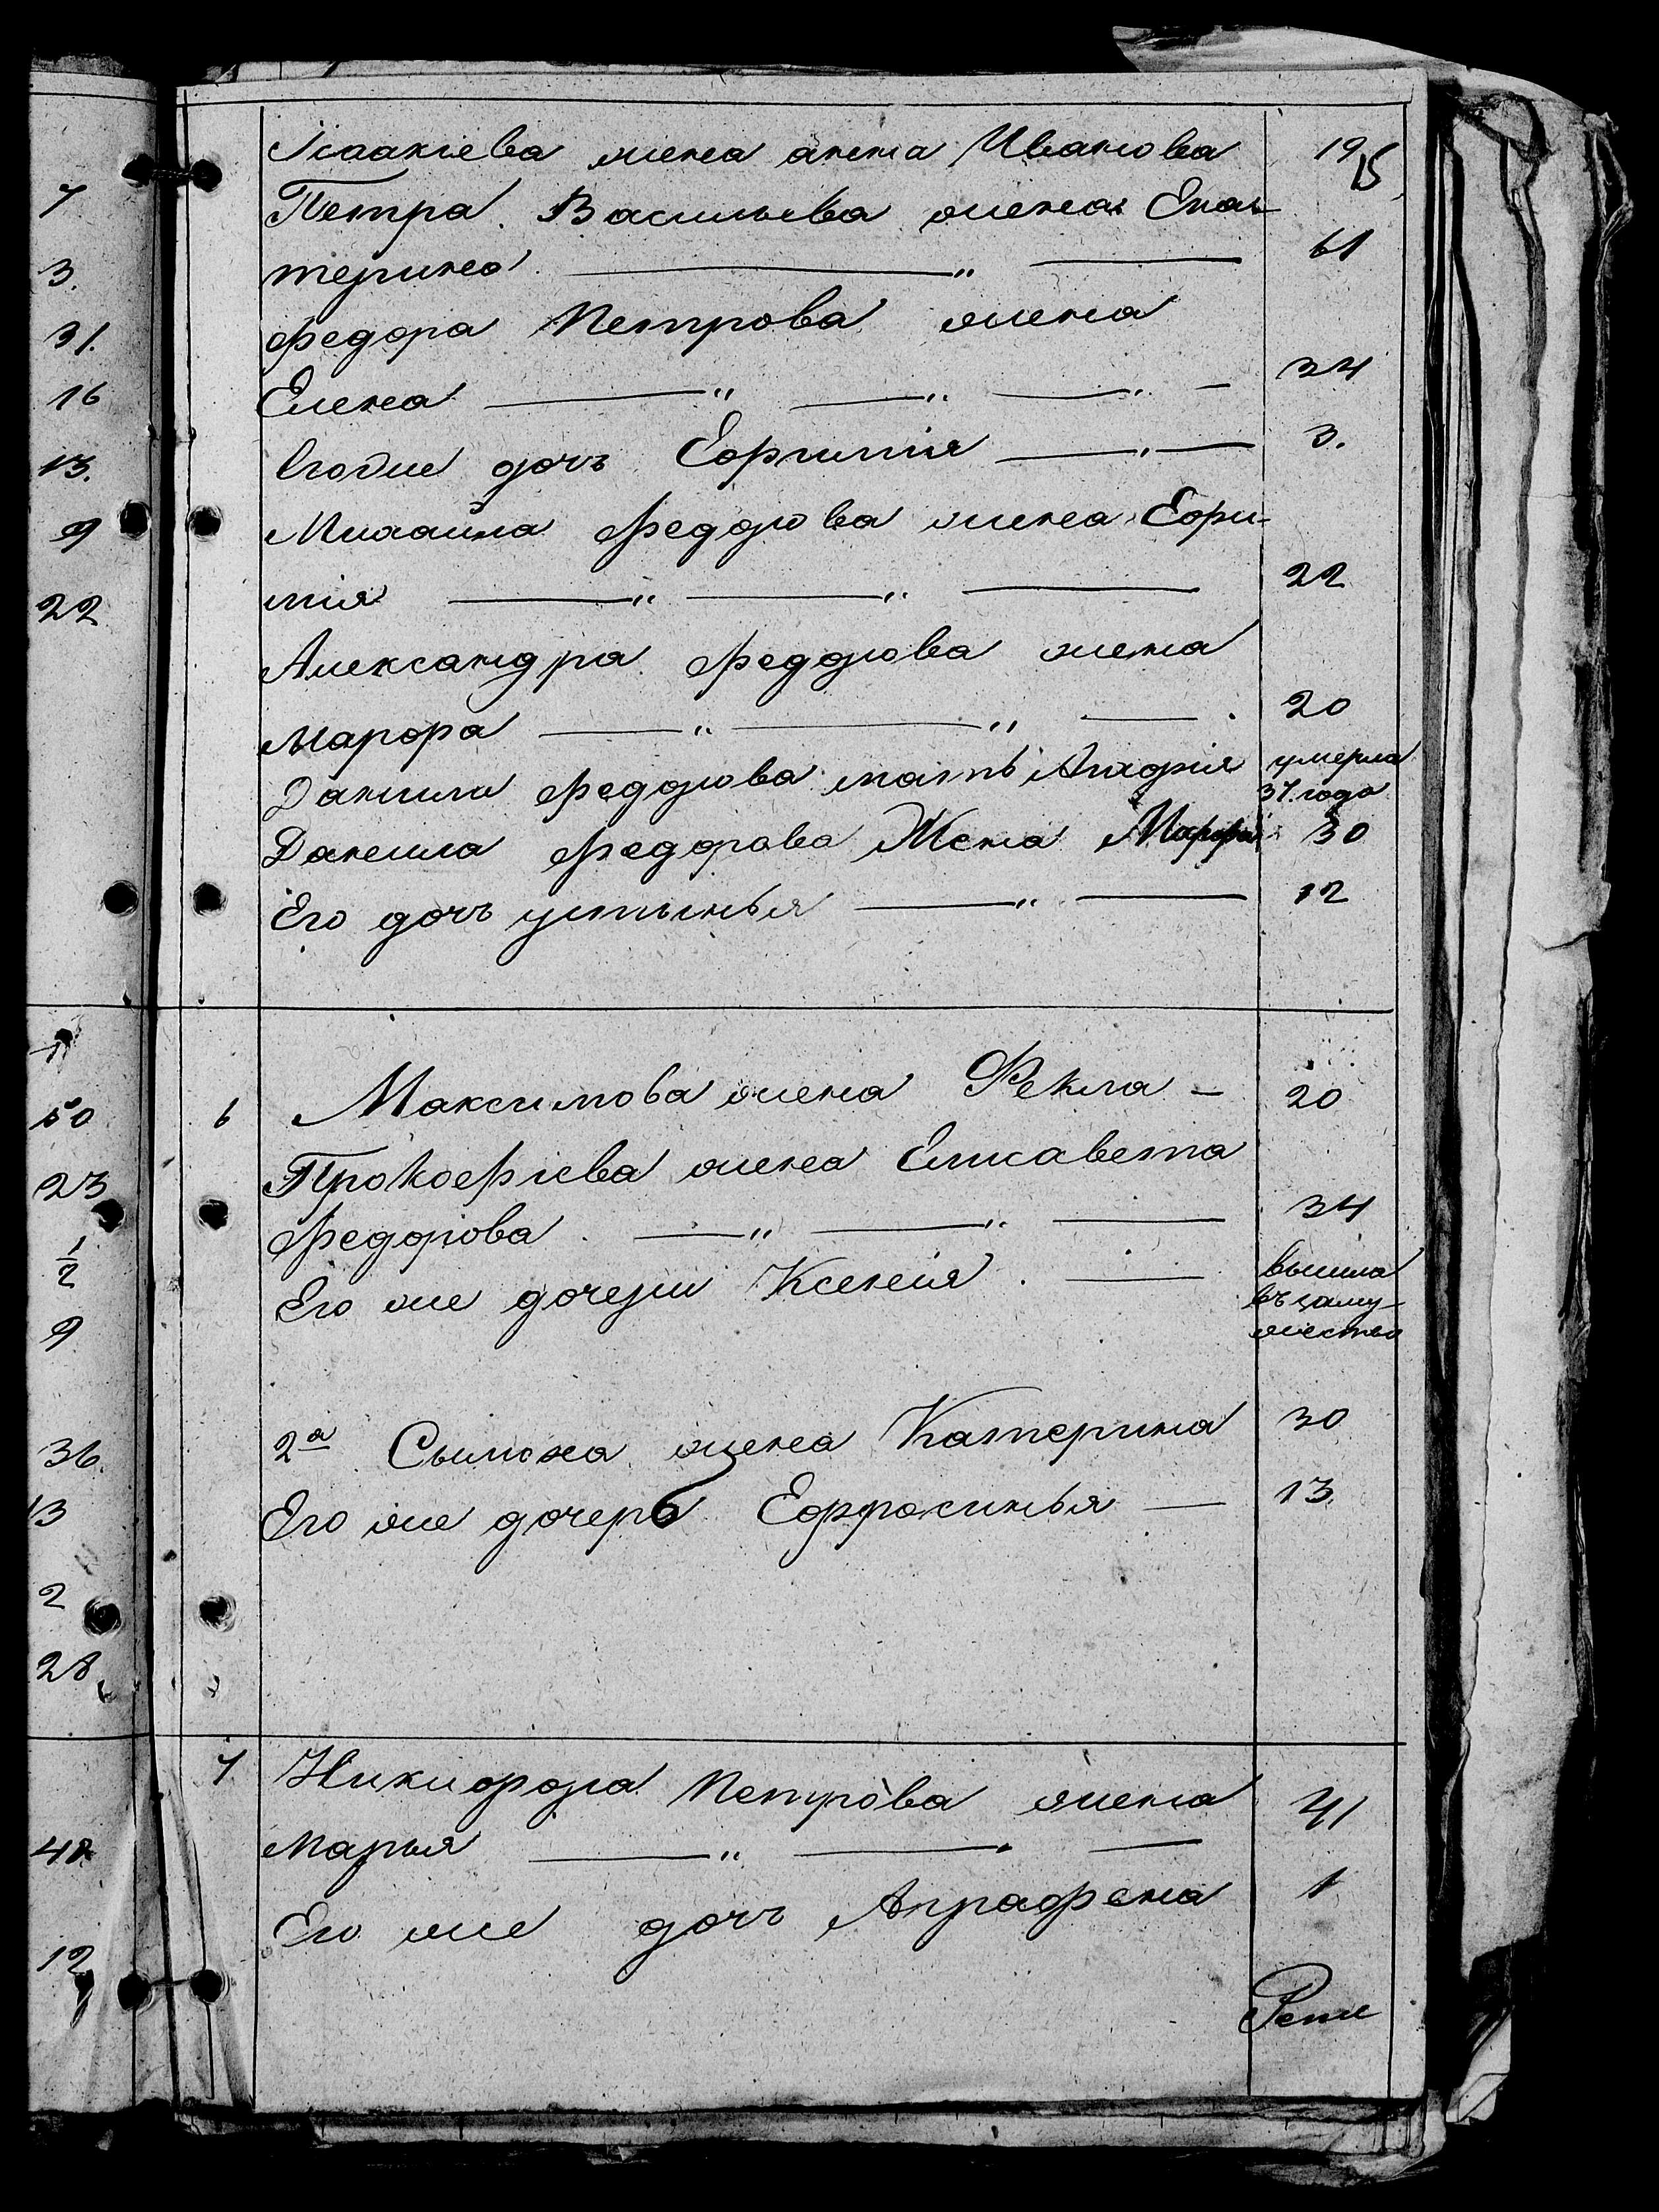 7
3.
31.
16
13.
9
22
50
23
1/2
9
36.
13
2
28
12
Исаакіева жена анна Иванова 19
15
Петра Васильева жена Ека-
терина — „ — 61
Федора Петрова жена
Елена — „ — „ — „ — 34
дочь Ефимія — „ — 3.
Михаила Федорова жена Ефи-
мія — „ — „ — 22
Александра Федорова жена
Марфа — „ — „ — 20
Данила Федорова мать умерла
37. года
Данила Федорова Жена Марфа 30
Его дочь устинья — „ — 12
6 Максимова жена Фекла — 20
Прокофіева жена Елисавета
Федорова — „ — „ — 34
Его же дочери Ксенія — вышла
въ заму-
жество
2я жена Катерина 30
Его же дочерь Ефросинья — 13.
7 Никифора Петрова жена
Марья — „ — — 41
Его же дочь Аграфена 1